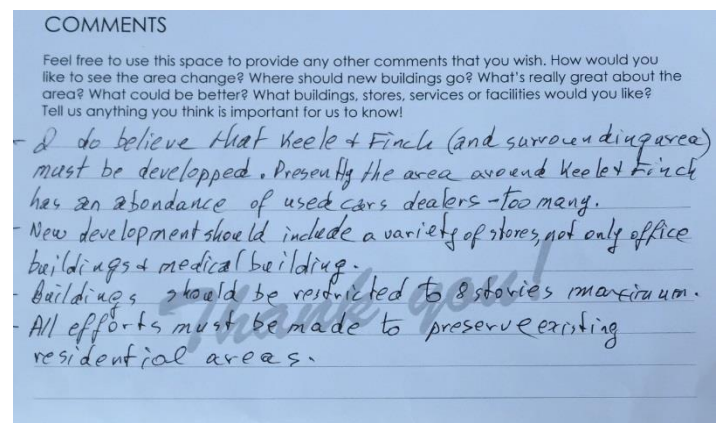 COMMENTS
Feel free to use this space to provide any other comments that you wish. How would you
like to see the area change? Where should new buildings go? What's really great about the
area? What could be better? What buildings, stores, services or facilities would you like?
Tell us anything you think is important for us to know!
- I do believe that Keele & Finch (and surrounding area)
must be developped. Presently the area around Keele & Finch
has an abondance of used cars dealers - too many.
- New development should include a variety of stores, not only office
buildings & medical building.
- Buildings should be restricted to 8 stories maximum.
- All efforts must be made to preserve existing
residential areas.
Thank you!